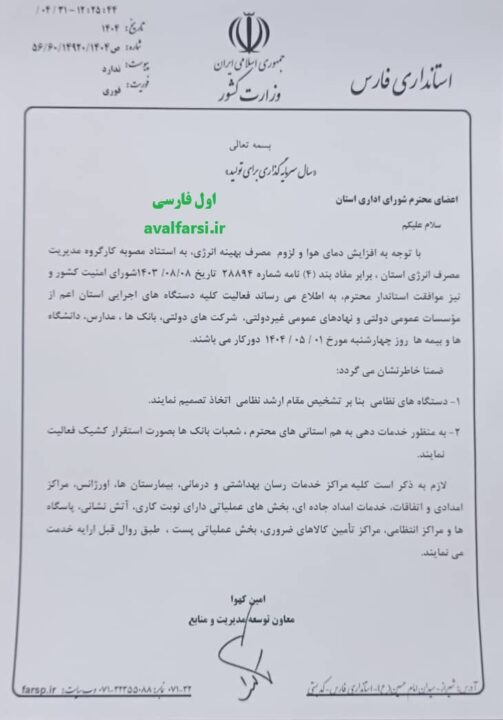 جمهوری اسلامی ایران
وزارت کشور
استانداری فارس
۱۲:۲۵:۴۴ - ۰۴/۳۱/
تاریخ: ۱۴۰۴
شماره: ص/۵۶/۶۰/۱۴۹۲۰/۱۴۰۴
پیوست: ندارد
فوریت: فوری
بسمه تعالی
«سال سرمایه گذاری برای تولید»
اول فارسی
avalfarsi.ir
اعضای محترم شورای اداری استان
سلام علیکم
با توجه به افزایش دمای هوا و لزوم مصرف بهینه انرژی، به استناد مصوبه کارگروه مدیریت
مصرف انرژی استان ، برابر مفاد بند (۴) نامه شماره ۲۸۸۹۴ تاریخ ۱۴۰۳/۰۸/۰۸شورای امنیت کشور و
نیز موافقت استاندار محترم، به اطلاع می رساند فعالیت کلیه دستگاه های اجرایی استان اعم از
مؤسسات عمومی دولتی و نهادهای عمومی غیردولتی، شرکت های دولتی، بانک ها ، مدارس، دانشگاه
ها و بیمه ها روز چهارشنبه مورخ ۰۱ / ۰۵ / ۱۴۰۴ دورکار می باشند.
ضمنا خاطرنشان می گردد:
۱- دستگاه های نظامی بنا بر تشخیص مقام ارشد نظامی اتخاذ تصمیم نمایند.
۲- به منظور خدمات دهی به هم استانی های محترم ، شعبات بانک ها بصورت استقرار کشیک فعالیت
نمایند.
لازم به ذکر است کلیه مراکز خدمات رسان بهداشتی و درمانی، بیمارستان ها، اورژانس، مراکز
امدادی و اتفاقات، خدمات امداد جاده ای، بخش های عملیاتی دارای نوبت کاری، آتش نشانی، پاسگاه
ها و مراکز انتظامی، مراکز تأمین کالاهای ضروری، بخش عملیاتی پست ، طبق روال قبل ارایه خدمت
می نمایند.
امین کهوا
معاون توسعه مدیریت و منابع
آدرس: شیراز- میدان امام حسین(ع)- استانداری فارس - کدپستی
۰۷۱-۳۲ نمابر: ۳۲۳۵۵۰۸۸-۰۷۱ وب سایت: farsp.ir